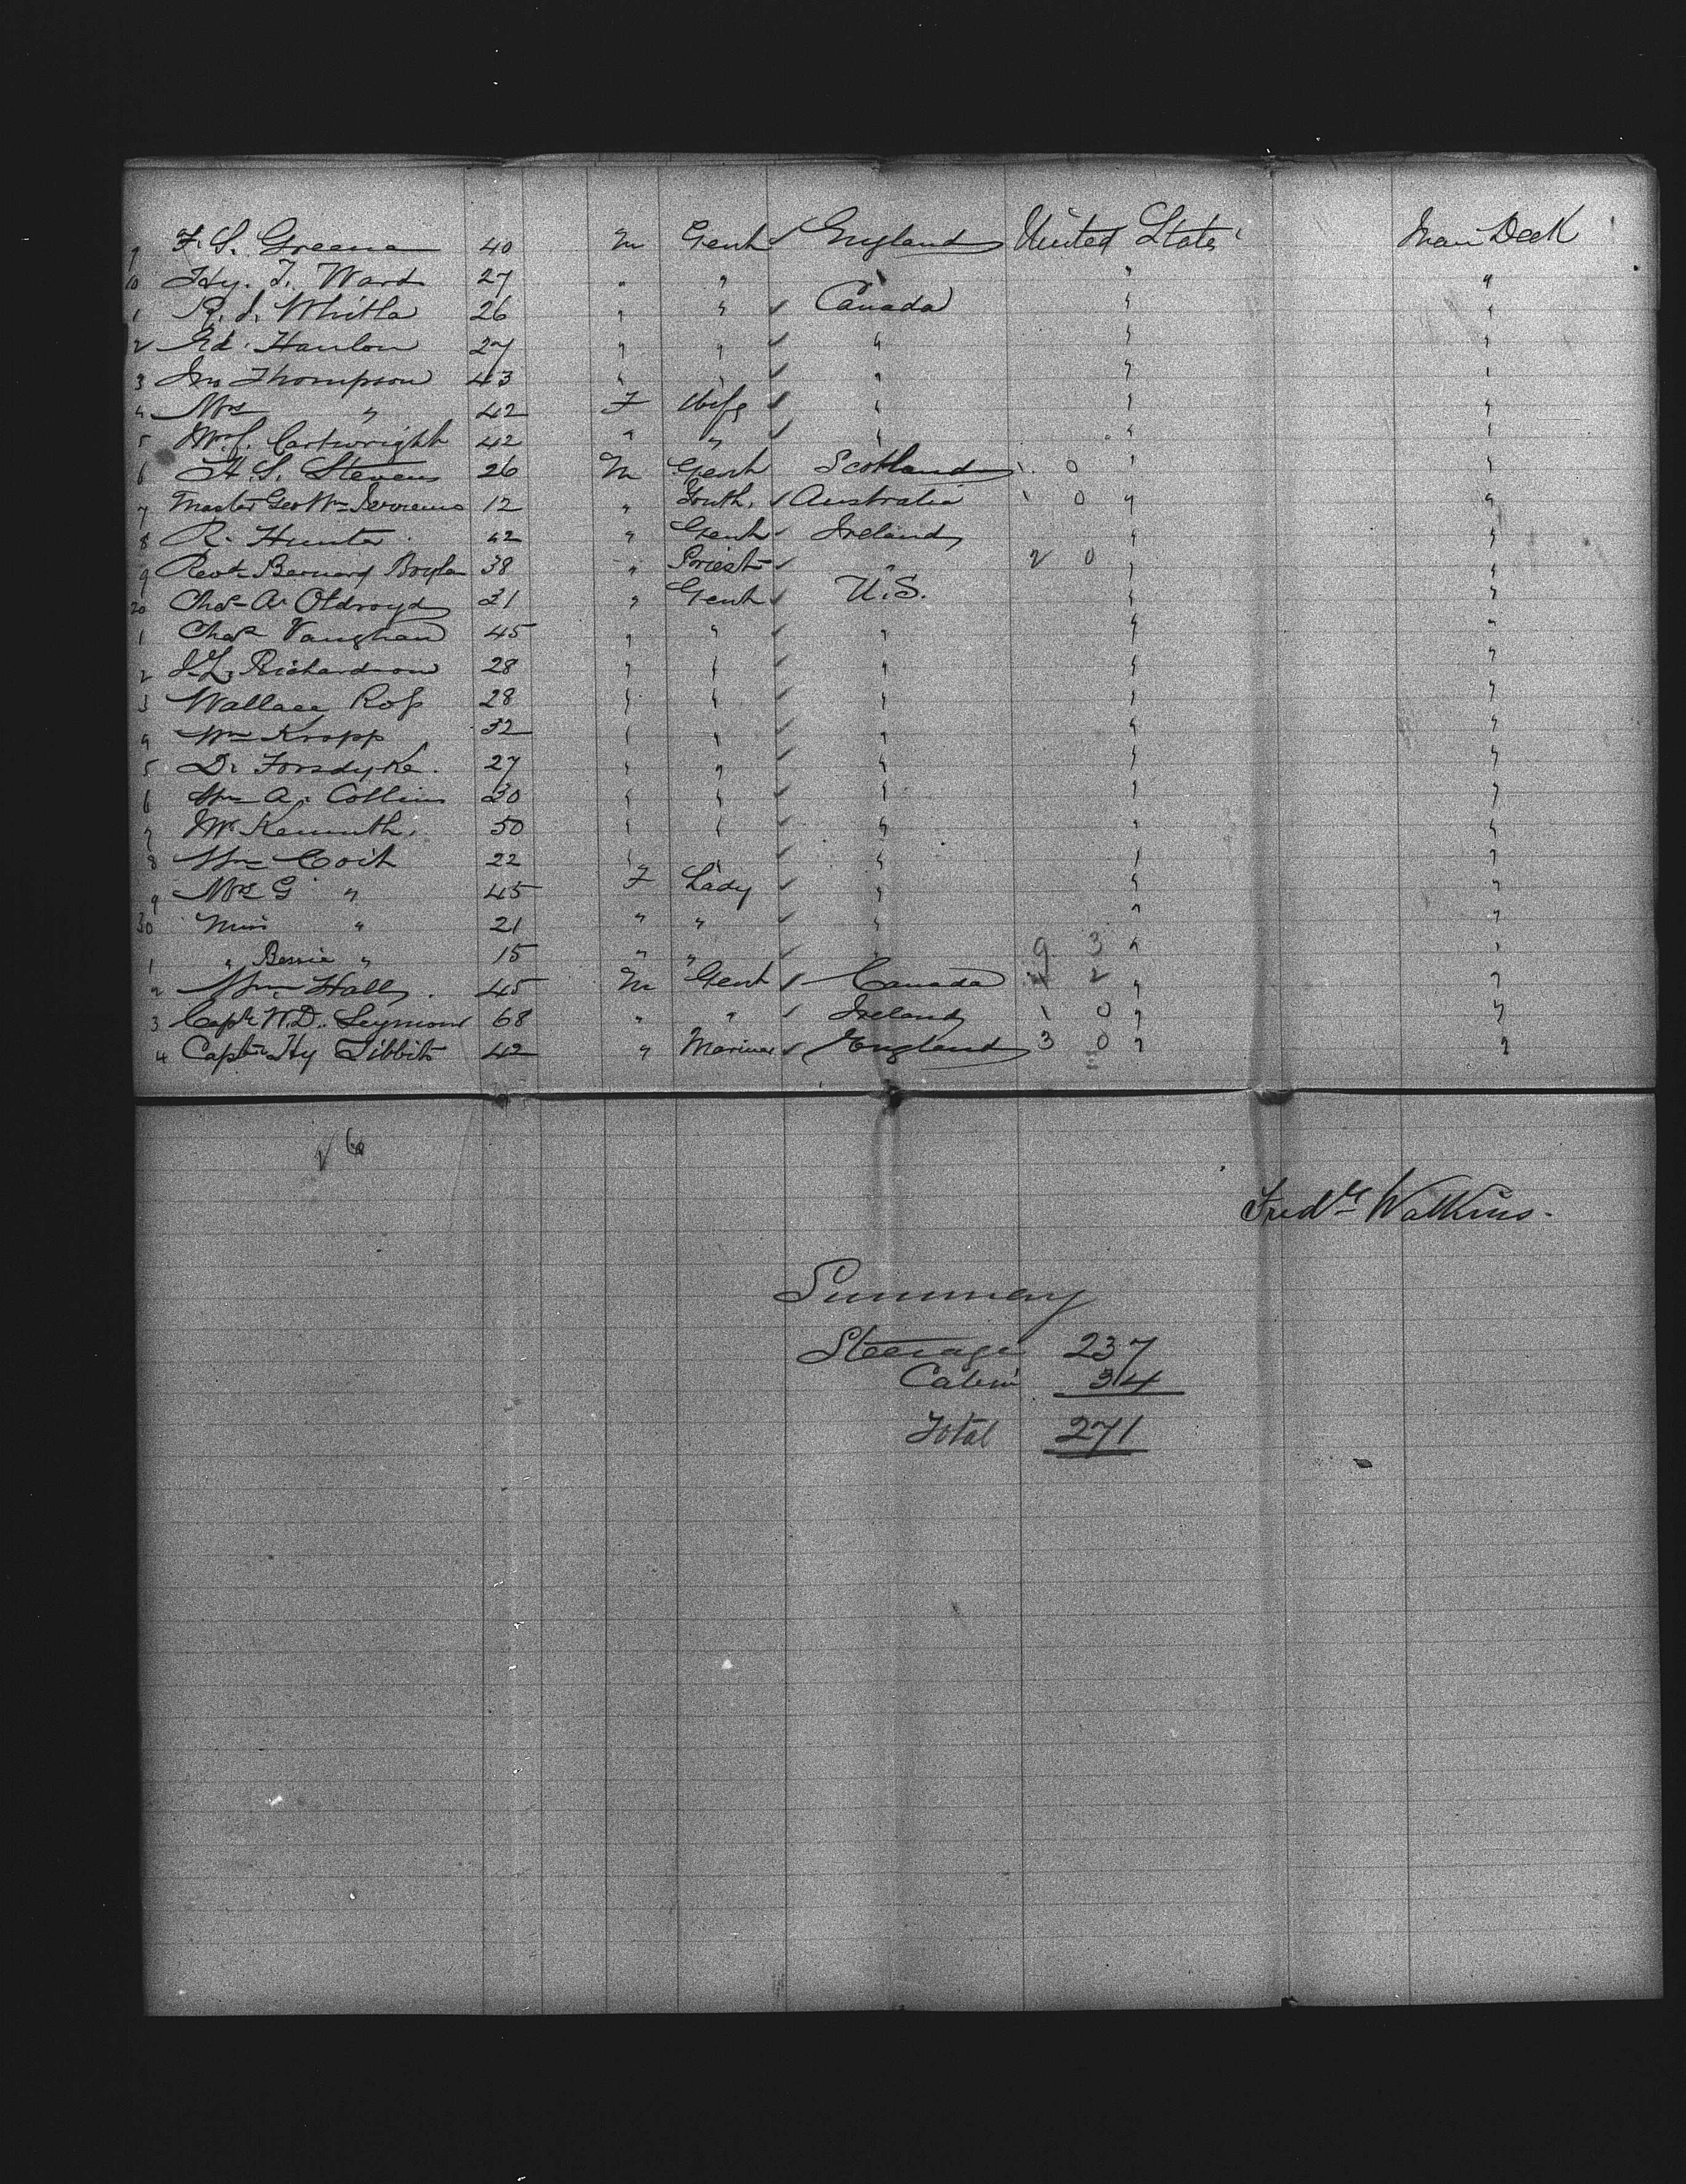 9 F. S. Greene 40 M Gent ✓ England United States Main Deck
10 Hy. J. Ward 27 " " " " "
1 R. J. Whitla 26 " " ✓ Canada " "
2 Ed. Hanlon 27 " " ✓ " " "
3 Jno Thompson 43 " " ✓ " " "
4 Mrs " 42 F Wife ✓ " " "
5 Cartwright 42 " " ✓ " " "
6 H. S. Stevens 26 M Gent Scotland 1 0 " "
7 Master Geo Wm 12 " Youth ✓ Australia 1 0 " "
8 R. Hunter 42 " Gent ✓ Ireland " "
9 Revd Bernard Boylan 38 " Priest ✓ " 2 0 " "
20 Chas A. Oldroyd 21 " Gent ✓ U.S. " "
1 Chas Vaughan 45 " " ✓ " " "
2 Richardson 28 " " ✓ " " "
3 Wallace Ross 28 " " ✓ " " "
4 Wm Kropp 32 " " ✓ " " "
5 D. Forsdyke. 27 " " ✓ " " "
6 Wm A. Collins 30 " " ✓ " " "
7 50 " " ✓ " " "
8 Wm Coit 22 " " ✓ " " "
9 Mrs G " 45 F Lady ✓ " " "
30 Miss " 21 " " ✓ " " "
1 " Bessie " 15 " " ✓ " 9 3 " "
2 Wm Hall 45 M Gent ✓ Canada 4 2 " "
3 Capt W.D. Seymour 68 " " ✓ Ireland 1 0 " "
4 Captn Hy Tibbits 42 " Mariner ✓ England 3 0 " "
Fredk Watkins.
Summary
Steerage 237
Cabin 34
Total 271